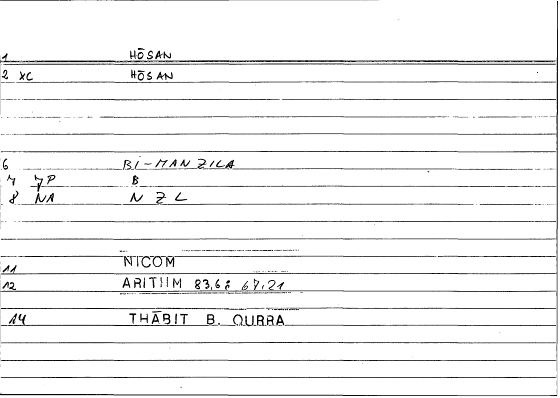 1 HŌSAN
2 XC HŌSAN
6 BI-MANZILA
7 7P B
8 NA N Z L
11 NICOM
12 ARITHM 83,6; 67,21
14 THĀBIT B. QURRA